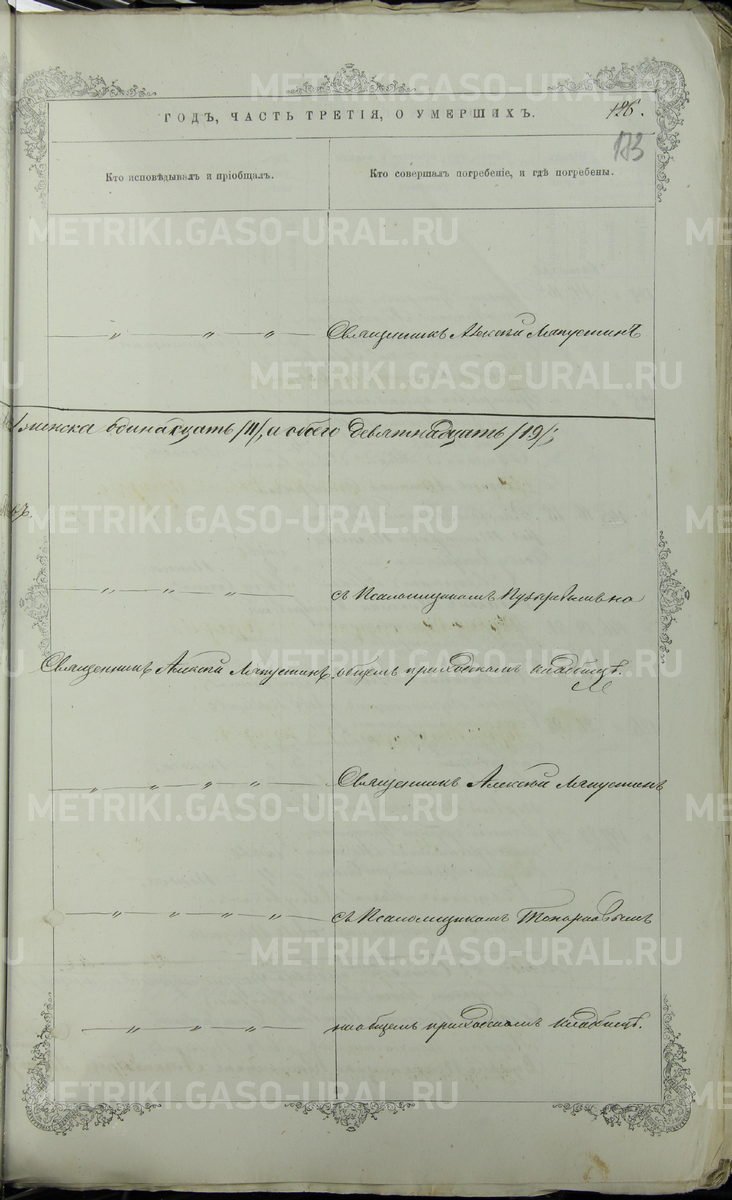 ГОДЪ, ЧАСТЬ ТРЕТІЯ, О УМЕРШИХЪ.
126.
173
Кто исповѣдывалъ и пріобщалъ.
Кто совершалъ погребеніе, и гдѣ погребены.
— „ — „ — „ — Священникъ Алексѣй Ляпустинъ
женска одинадцать /11/, и обоего девятнадцать /19/;
— „ — „ — „ — съ Псаломщикомъ на
Священникъ Алексѣй Ляпустинъ. общемъ приходскомъ кладбищѣ.
— „ — „ — „ — „ — Священникъ Алексѣй Ляпустинъ
— „ — „ — „ — „ съ Псаломщикомъ Топорковымъ
— „ — „ — „ — на общемъ приходскомъ кладбищѣ.
METRIKI.GASO-URAL.RU